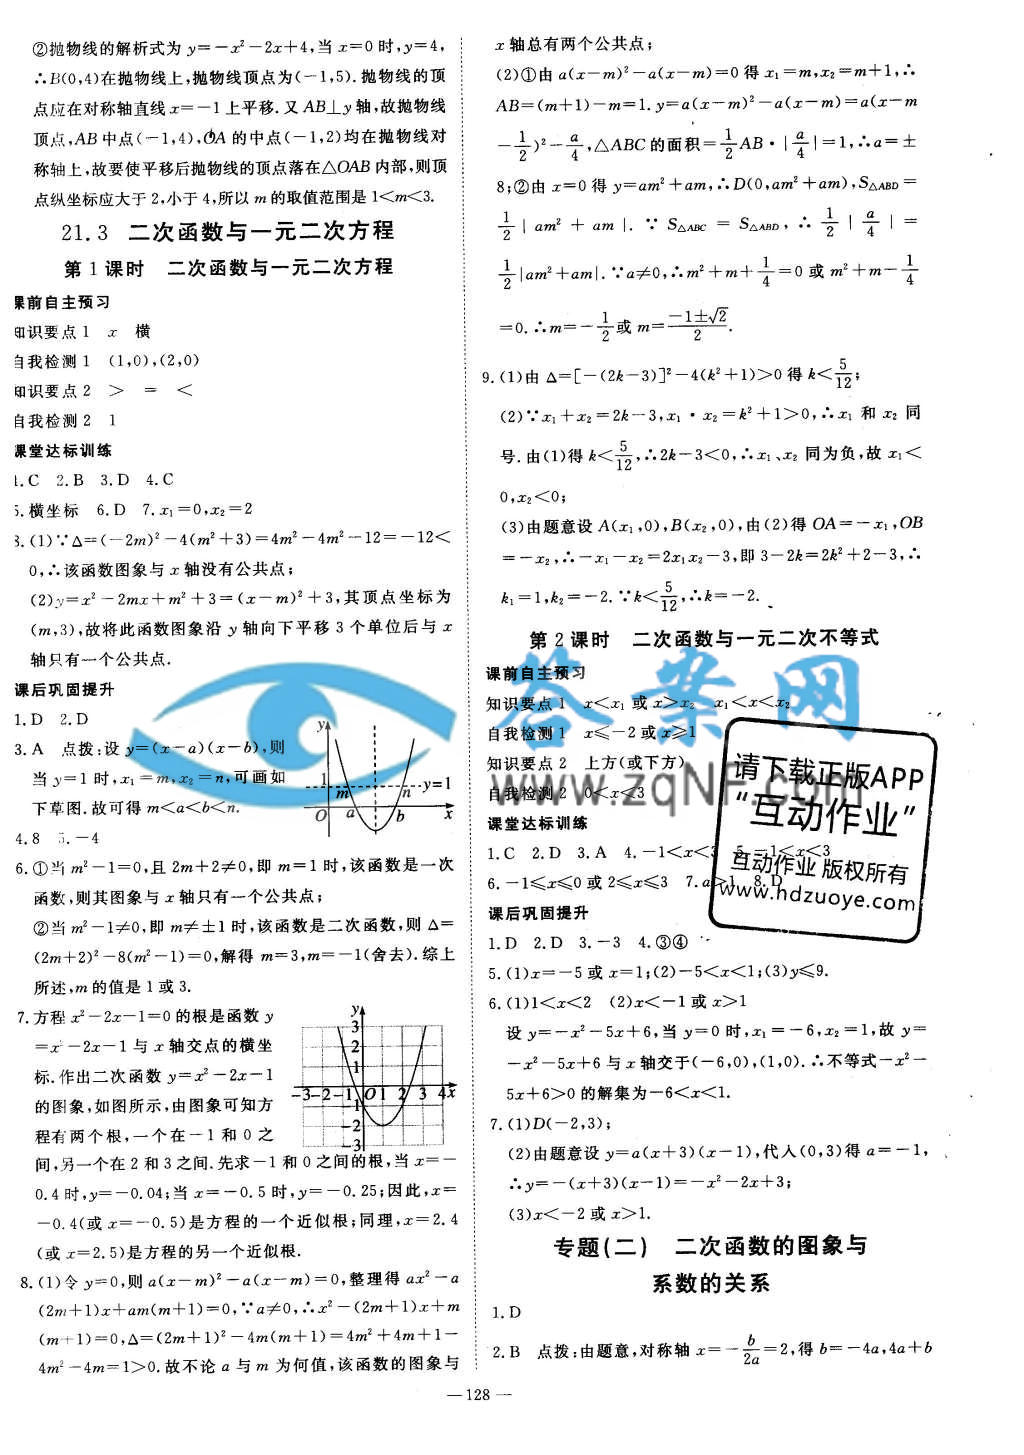 ②抛物线的解析式为 y=-x²-2x+4,当 x=0 时,y=4,
∴B(0,4)在抛物线上,抛物线顶点为(-1,5).抛物线的顶
点应在对称轴直线 x=-1 上平移.又 AB⊥y 轴,故抛物线
顶点,AB 中点(-1,4),OA 的中点(-1,2)均在抛物线对
称轴上,故要使平移后抛物线的顶点落在△OAB 内部,则顶
点纵坐标应大于 2,小于 4,所以 m 的取值范围是 1<m<3.
21.3 二次函数与一元二次方程
第 1 课时 二次函数与一元二次方程
课前自主预习
知识要点 1 x 横
自我检测 1 (1,0),(2,0)
知识要点 2 > = <
自我检测 2 1
课堂达标训练
1.C 2.B 3.D 4.C
5.横坐标 6.D 7.x₁=0,x₂=2
8.(1)∵Δ=(-2m)²-4(m²+3)=4m²-4m²-12=-12<
0,∴该函数图象与 x 轴没有公共点;
(2)y=x²-2mx+m²+3=(x-m)²+3,其顶点坐标为
(m,3),故将此函数图象沿 y 轴向下平移 3 个单位后与 x
轴只有一个公共点.
课后巩固提升
1.D 2.D
3.A 点拨:设 y=(x-a)(x-b),则
当 y=1 时,x₁=m,x₂=n,可画如
下草图.故可得 m<a<b<n.
y
1 m n y=1
O a b x
4.8 5.-4
6.①当 m²-1=0,且 2m+2≠0,即 m=1 时,该函数是一次
函数,则其图象与 x 轴只有一个公共点;
②当 m²-1≠0,即 m≠±1 时,该函数是二次函数,则 Δ=
(2m+2)²-8(m²-1)=0,解得 m=3,m=-1(舍去).综上
所述,m 的值是 1 或 3.
7.方程 x²-2x-1=0 的根是函数 y
=x²-2x-1 与 x 轴交点的横坐
标.作出二次函数 y=x²-2x-1
的图象,如图所示,由图象可知方
程有两个根,一个在-1 和 0 之
间,另一个在 2 和 3 之间.先求-1 和 0 之间的根,当 x=-
0.4 时,y=-0.04;当 x=-0.5 时,y=-0.25;因此,x=
-0.4(或 x=-0.5)是方程的一个近似根;同理,x=2.4
(或 x=2.5)是方程的另一个近似根.
y
3
2
1
-3-2-1 O 1 2 3 4 x
-1
-2
-3
8.(1)令 y=0,则 a(x-m)²-a(x-m)=0,整理得 ax²-a
(2m+1)x+am(m+1)=0,∵a≠0,∴x²-(2m+1)x+m
(m+1)=0,Δ=(2m+1)²-4m(m+1)=4m²+4m+1-
4m²-4m=1>0.故不论 a 与 m 为何值,该函数的图象与
x 轴总有两个公共点;
(2)①由 a(x-m)²-a(x-m)=0 得 x₁=m,x₂=m+1,∴
AB=(m+1)-m=1.y=a(x-m)²-a(x-m)=a(x-m
-1/2)²-a/4,△ABC 的面积=1/2 AB·|a/4|=1,∴a=±
8;②由 x=0 得 y=am²+am,∴D(0,am²+am),S△ABD=
1/2|am²+am|.∵S△ABC=S△ABD,∴1/2|a/4|=
1/2|am²+am|.∵a≠0,∴m²+m+1/4=0 或 m²+m-1/4
=0.∴m=-1/2 或 m=(-1±√2)/2.
9.(1)由 Δ=[-(2k-3)]²-4(k²+1)>0 得 k<5/12;
(2)∵x₁+x₂=2k-3,x₁·x₂=k²+1>0,∴x₁ 和 x₂ 同
号.由(1)得 k<5/12,∴2k-3<0,∴x₁、x₂ 同为负,故 x₁<
0,x₂<0;
(3)由题意设 A(x₁,0),B(x₂,0),由(2)得 OA=-x₁,OB
=-x₂,∴-x₁-x₂=2x₁x₂-3,即 3-2k=2k²+2-3,∴
k₁=1,k₂=-2.∵k<5/12,∴k=-2.
第 2 课时 二次函数与一元二次不等式
课前自主预习
知识要点 1 x<x₁ 或 x>x₂ x₁<x<x₂
自我检测 1 x≤-2 或 x≥1
知识要点 2 上方(或下方)
自我检测 2 0<x<3
课堂达标训练
1.C 2.D 3.A 4.-1<x<3 5.-1<x<3
6.-1≤x≤0 或 2≤x≤3 7.a>1 8.D
课后巩固提升
1.D 2.D 3.-3 4.③④
5.(1)x=-5 或 x=1;(2)-5<x<1;(3)y≤9.
6.(1)1<x<2 (2)x<-1 或 x>1
设 y=-x²-5x+6,当 y=0 时,x₁=-6,x₂=1,故 y=
-x²-5x+6 与 x 轴交于(-6,0),(1,0).∴不等式-x²-
5x+6>0 的解集为-6<x<1.
7.(1)D(-2,3);
(2)由题意设 y=a(x+3)(x-1),代人(0,3)得 a=-1,
∴y=-(x+3)(x-1)=-x²-2x+3;
(3)x<-2 或 x>1.
专题(二) 二次函数的图象与
系数的关系
1.D
2.B 点拨:由题意,对称轴 x=-b/2a=2,得 b=-4a,4a+b
—128—
答案网
www.zqNF.com
请下载正版APP
“互动作业”
互动作业 版权所有
www.hdzuoye.com